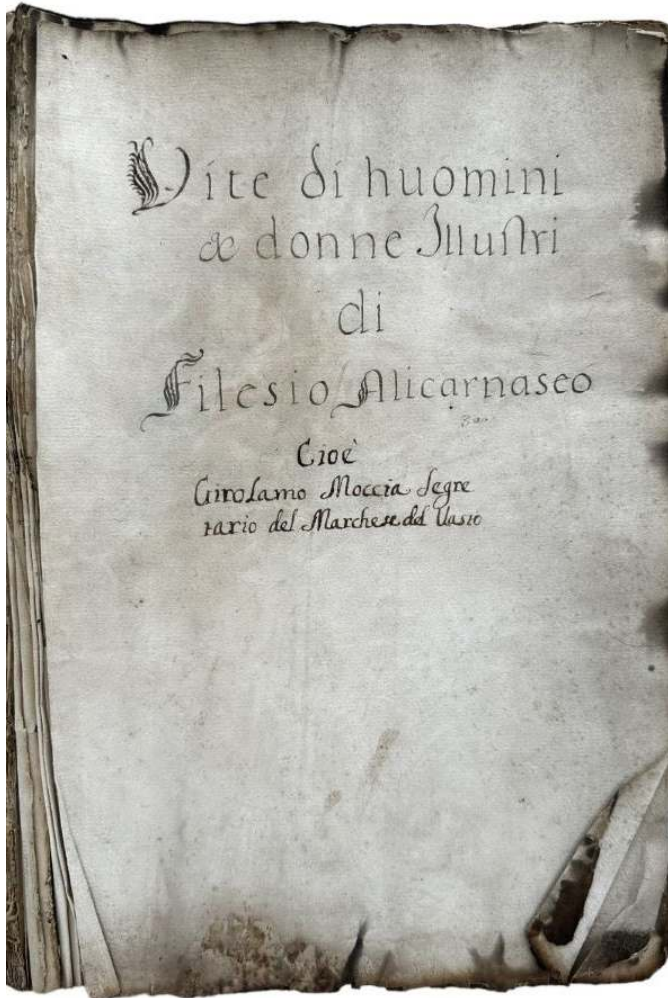 Vite di huomini
& donne Illuſtri
di
Filesio Alicarnaseo
Cioè
Girolamo Moccia Segre
tario del Marchese del Vasto